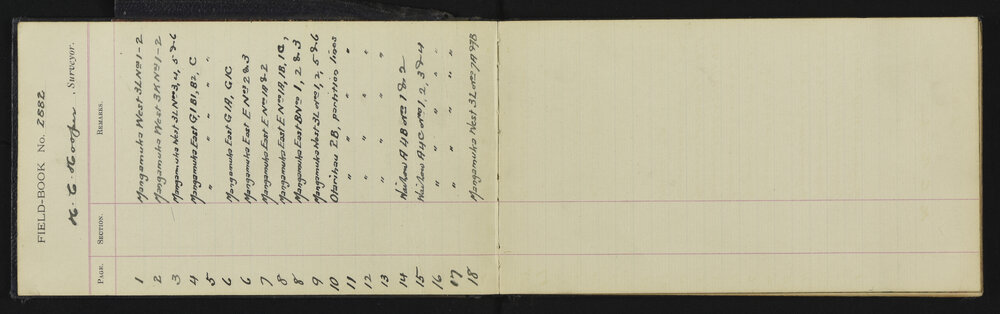 FIELD-BOOK No. 2882
H. C. Hooper, Surveyor.
PAGE. SECTION. REMARKS.
1 Mangamuka West 3L Nos 1-2
2 Mangamuka West 3K Nos 1-2
3 Mangamuka West 3L Nos 3, 4, 5 & 6
4 Mangamuka East G1 B1, B2, C
5 " " " "
6 Mangamuka East G1A, G1C
6 Mangamuka East E Nos 2 & 3
7 Mangamuka East E Nos 1A & 2
8 Mangamuka East E Nos 1A, 1B, 1C,
8 Mangamuka East B Nos 1, 2 & 3
9 Mangamuka West 3L Nos 1, 2, 5 & 6
10 Otarihau 2B, partition lines
11 " " " "
12 " " " "
13 " " " "
14 A 4B Nos 1 & 2
15 A 4C Nos 1, 2, 3 & 4
16 " " " "
17 " " " "
18 Mangamuka West 3L Nos 7A & 7B